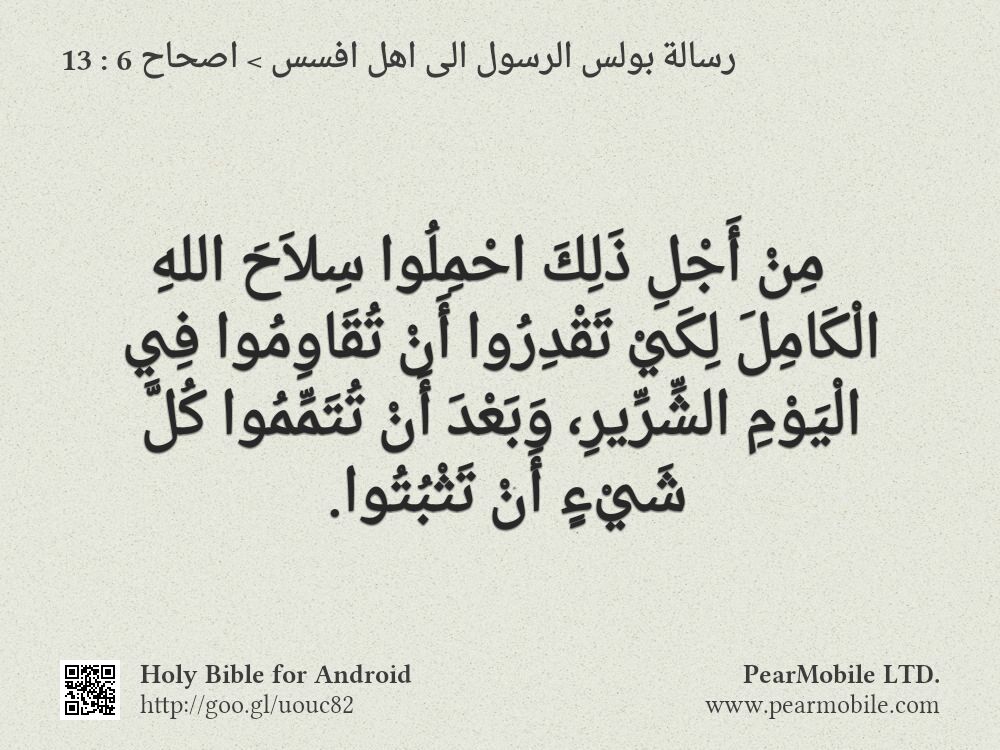 رسالة بولس الرسول الى اهل افسس > اصحاح 6 : 13
مِنْ أَجْلِ ذَلِكَ احْمِلُوا سِلاَحَ اللهِ
الْكَامِلَ لِكَيْ تَقْدِرُوا أَنْ تُقَاوِمُوا فِي
الْيَوْمِ الشِّرِّيرِ، وَبَعْدَ أَنْ تُتَمِّمُوا كُلَّ
شَيْءٍ أَنْ تَثْبُتُوا.
Holy Bible for Android
http://goo.gl/uouc82
PearMobile LTD.
www.pearmobile.com